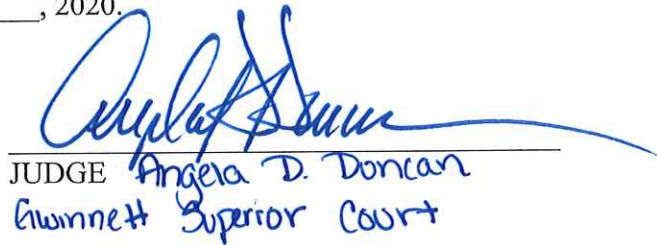 ___, 2020.
JUDGE Angela D. Duncan
Gwinnett Superior Court